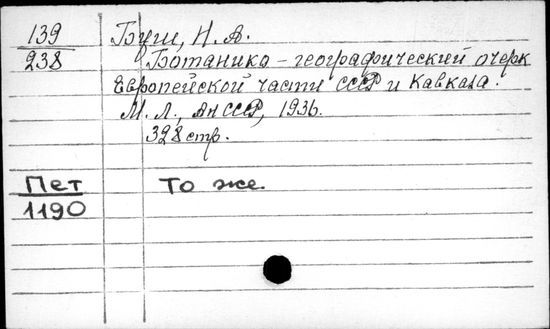 139 Буш, Н. А.
238 Ботанико-географический очерк
Европейской части СССР и Кавказа.
М. Л., АН СССР, 1936.
328 стр.
Пет То же.
1190